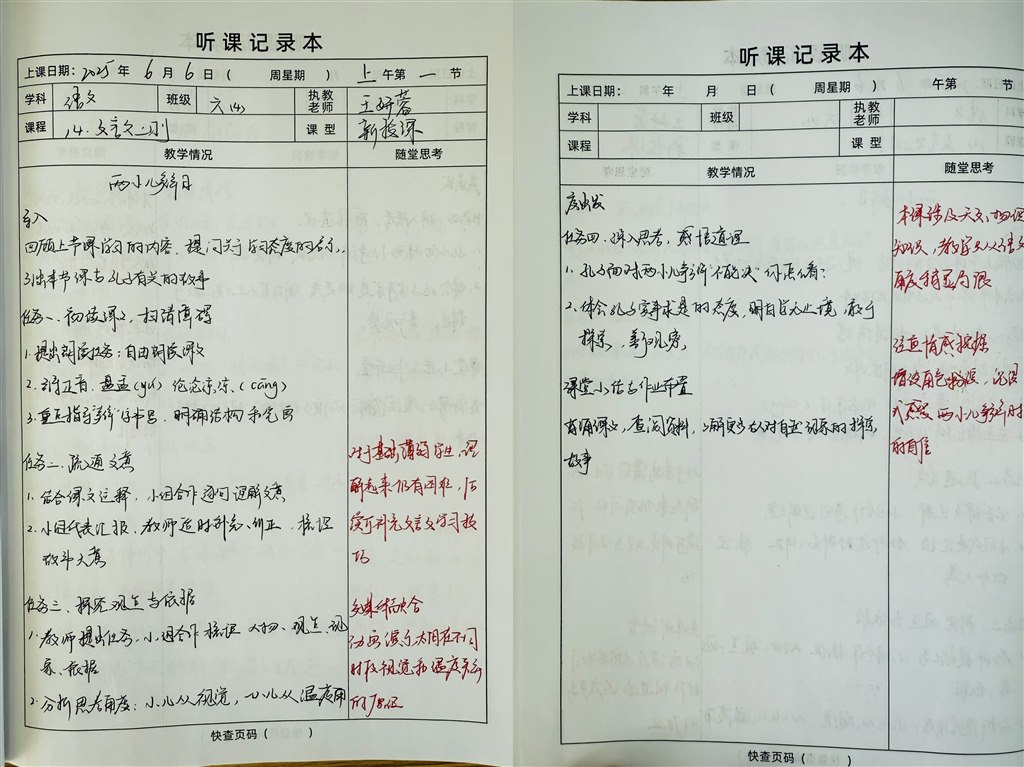 听课记录本
上课日期：2025 年 6 月 6 日（ 周星期 ） 上 午第 一 节
学科 语文 班级 六(4) 执教老师 王妍蓉
课程 14.文言文二则 课型 新授课
教学情况 随堂思考
两小儿辩日
导入
回顾上节课学习的内容，提问关于学习态度的名言，
引出本节课与孔子有关的故事
任务一、初读课文，扫清障碍
1.提出朗读任务：自由朗读课文
2.引导正音，盘盂(yú) 沧沧凉凉(cāng)
3.重点指导"辩"的书写，明确结构和笔画
任务二、疏通文意
1.结合课文注释，小组合作逐句理解文意
2.小组代表汇报，教师适时补充、纠正，梳理
故事大意
对于基础薄弱学生，理
解起来仍有困难，后
续可补充文言文学习技
巧
任务三、探究观点与依据
1.教师提出任务，小组合作梳理 人物、观点、现
象、依据
2.分析思考角度：一小儿从视觉，一小儿从温度角
多媒体结合
动画演示太阳在不同
时段视觉和温度变化
的原因
快查页码（ ）
听课记录本
上课日期： 年 月 日（ 周星期 ） 午第 节
学科 班级 执教老师
课程 课型
教学情况 随堂思考
度出发
任务四、深入思考，感悟道理
1.孔子面对两小儿争辩"不能决"你怎么看？
2.体会孔子实事求是的态度，明白学无止境，敢于
探索，善于观察
课堂小结与作业布置
背诵课文，查阅资料，了解更多古人对自然现象的探索
故事
本课涉及天文、物理
知识，教学只从语文
角度稍显局限
注重情感挖掘
增设角色扮演，沉浸
式感受两小儿辩斗时
的自信
快查页码（ ）